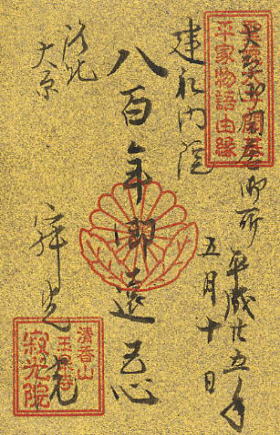 平家物語由緣
御所
平成廿五年
五月十日
建礼門院
八百年御遠忌
洛北
大原
寂光院
清香山
玉泉寺
寂光院